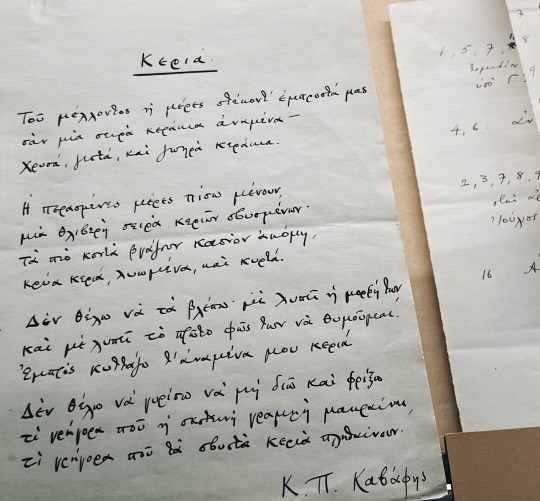 Κεριά.
Τοῦ μέλλοντος ἡ μέρες στέκοντ' ἐμπροστά μας
σὰν μιὰ σειρὰ κεράκια ἀναμένα —
Χρυσά, ζεστά, καὶ ζωηρὰ κεράκια.
Ἡ περασμένες μέρες πίσω μένουν,
μιὰ θλιβερὴ σειρὰ κεριῶν σβυσμένων·
τὰ πιὸ κοντὰ βγάζουν καπνὸν ἀκόμη,
κρύα κεριά, λυωμένα, καὶ κυρτά.
Δὲν θέλω νὰ τὰ βλέπω· μὲ λυπεῖ ἡ μορφή των
καὶ μὲ λυπεῖ τὸ πρῶτο φῶς των νὰ θυμοῦμαι.
Ἐμπρὸς κυττάζω τ' ἀναμένα μου κεριά
Δὲν θέλω νὰ γυρίσω νὰ μὴ διῶ καὶ φρίξω
τί γρήγορα ποῦ ἡ σκοτεινὴ γραμμὴ μακραίνει,
τί γρήγορα ποῦ τὰ σβυστὰ κεριὰ πληθαίνουν.
Κ. Π. Καβάφης
7
1, 5, 7, 8
ὑπὸ Γ.
4, 6.
2, 3, 7, 8, 9
Ἰούλιος
16